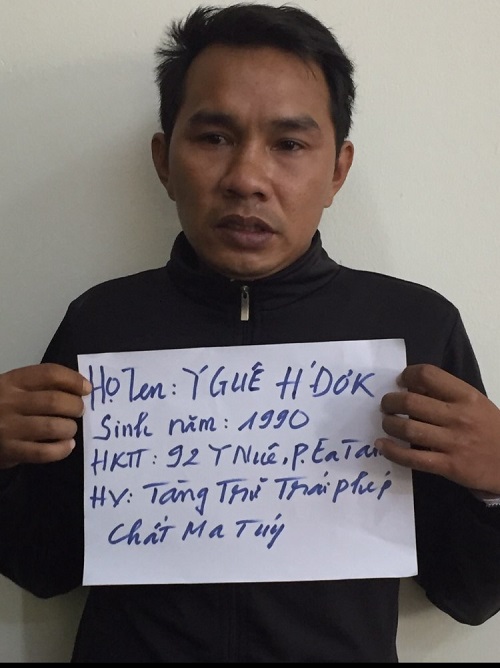 Họ Tên: Y GUÊ H'ĐƠK
Sinh năm: 1990
HKTT: 92 Y Nuê, P. Ea Tam
HV: Tàng Trữ Trái phép
Chất Ma Túy